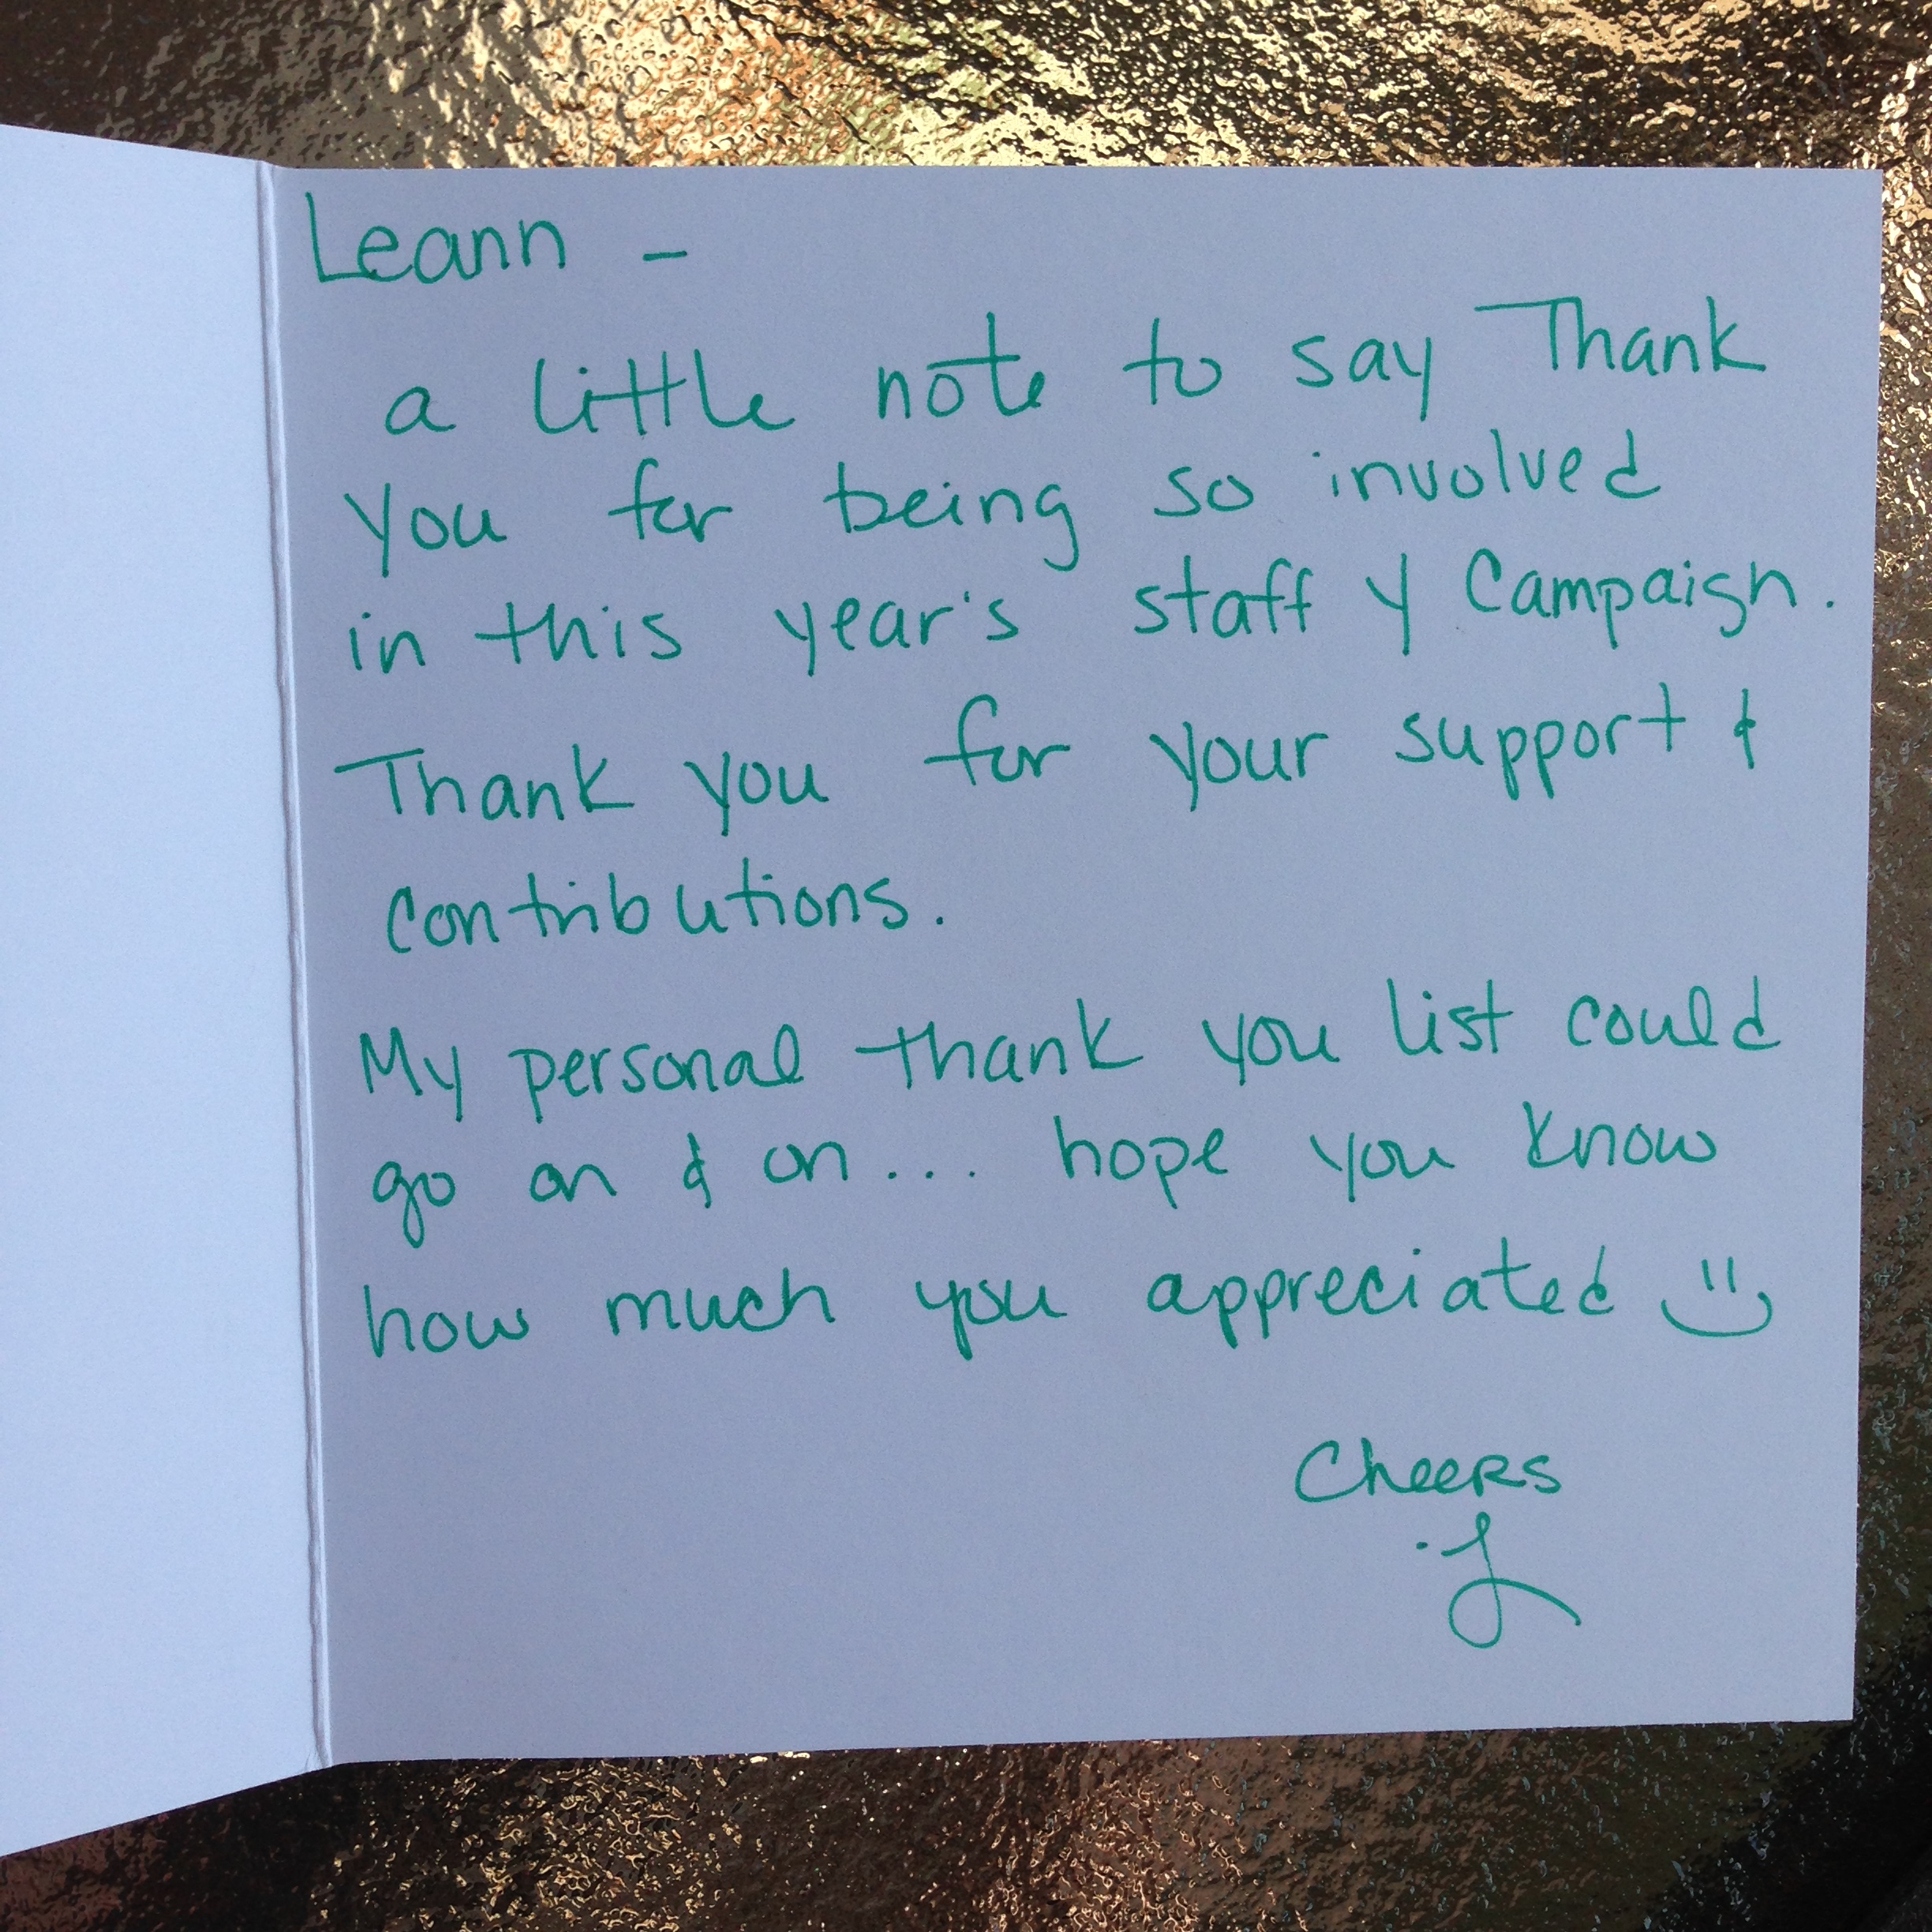 Leann -
a little note to say Thank
you for being so involved
in this year's staff Y Campaign.
Thank you for your support &
contributions.
My personal thank you list could
go on & on... hope you know
how much you appreciated
Cheers
J